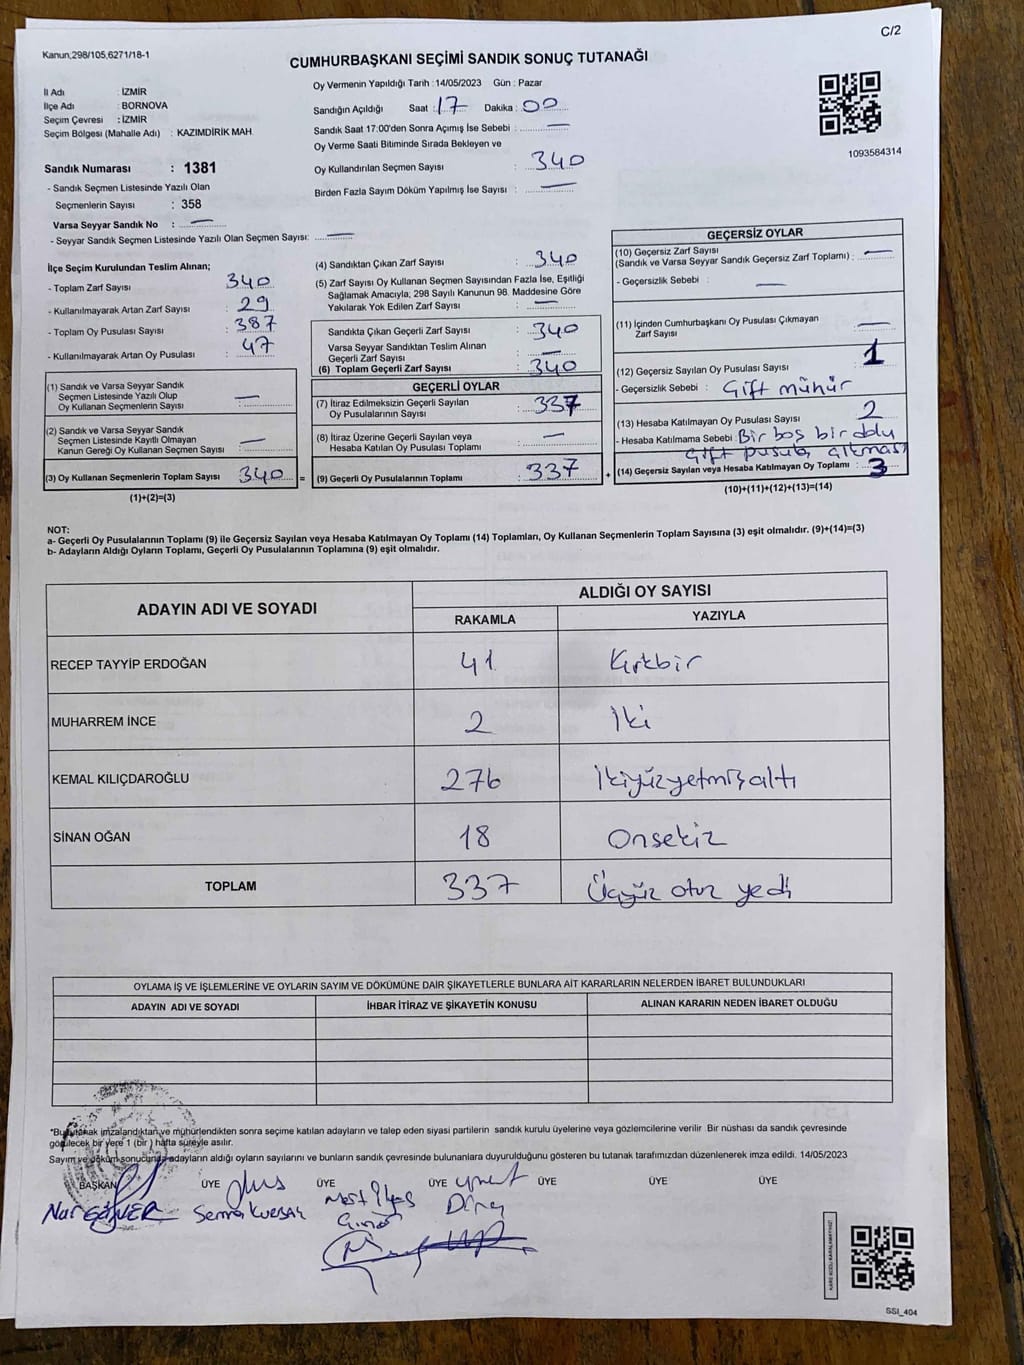 C/2
Kanun;298/105,6271/18-1
CUMHURBAŞKANI SEÇİMİ SANDIK SONUÇ TUTANAĞI
İl Adı : İZMİR
İlçe Adı : BORNOVA
Seçim Çevresi : İZMİR
Seçim Bölgesi (Mahalle Adı) : KAZIMDİRİK MAH.
Oy Vermenin Yapıldığı Tarih :14/05/2023 Gün : Pazar
Sandığın Açıldığı Saat : 17 Dakika : 00
Sandık Saat 17:00'den Sonra Açımış İse Sebebi : —
Oy Verme Saati Bitiminde Sırada Bekleyen ve
Oy Kullandırılan Seçmen Sayısı : 340
Birden Fazla Sayım Döküm Yapılmış İse Sayısı : —
1093584314
Sandık Numarası : 1381
- Sandık Seçmen Listesinde Yazılı Olan
Seçmenlerin Sayısı : 358
Varsa Seyyar Sandık No : —
- Seyyar Sandık Seçmen Listesinde Yazılı Olan Seçmen Sayısı: —
İlçe Seçim Kurulundan Teslim Alınan;
- Toplam Zarf Sayısı : 340
- Kullanılmayarak Artan Zarf Sayısı : 29
- Toplam Oy Pusulası Sayısı : 387
- Kullanılmayarak Artan Oy Pusulası : 47
(1) Sandık ve Varsa Seyyar Sandık
Seçmen Listesinde Yazılı Olup
Oy Kullanan Seçmenlerin Sayısı : —
(2) Sandık ve Varsa Seyyar Sandık
Seçmen Listesinde Kayıtlı Olmayan
Kanun Gereği Oy Kullanan Seçmen Sayısı : —
(3) Oy Kullanan Seçmenlerin Toplam Sayısı : 340 =
(1)+(2)=(3)
(4) Sandıktan Çıkan Zarf Sayısı : 340
(5) Zarf Sayısı Oy Kullanan Seçmen Sayısından Fazla İse, Eşitliği
Sağlamak Amacıyla, 298 Sayılı Kanunun 98. Maddesine Göre
Yakılarak Yok Edilen Zarf Sayısı : —
Sandıkta Çıkan Geçerli Zarf Sayısı : 340
Varsa Seyyar Sandıktan Teslim Alınan
Geçerli Zarf Sayısı : —
(6) Toplam Geçerli Zarf Sayısı : 340
GEÇERLİ OYLAR
(7) İtiraz Edilmeksizin Geçerli Sayılan
Oy Pusulalarının Sayısı : 337
(8) İtiraz Üzerine Geçerli Sayılan veya
Hesaba Katılan Oy Pusulası Toplamı : —
(9) Geçerli Oy Pusulalarının Toplamı : 337 +
GEÇERSİZ OYLAR
(10) Geçersiz Zarf Sayısı
(Sandık ve Varsa Seyyar Sandık Geçersiz Zarf Toplamı) : —
- Geçersizlik Sebebi : —
(11) İçinden Cumhurbaşkanı Oy Pusulası Çıkmayan
Zarf Sayısı : —
(12) Geçersiz Sayılan Oy Pusulası Sayısı : 1
- Geçersizlik Sebebi : Çift mühür
(13) Hesaba Katılmayan Oy Pusulası Sayısı : 2
- Hesaba Katılmama Sebebi : Bir boş bir dolu
Çift pusula çıkması
(14) Geçersiz Sayılan veya Hesaba Katılmayan Oy Toplamı : 3
(10)+(11)+(12)+(13)=(14)
NOT:
a- Geçerli Oy Pusulalarının Toplamı (9) ile Geçersiz Sayılan veya Hesaba Katılmayan Oy Toplamı (14) Toplamları, Oy Kullanan Seçmenlerin Toplam Sayısına (3) eşit olmalıdır. (9)+(14)=(3)
b- Adayların Aldığı Oyların Toplamı, Geçerli Oy Pusulalarının Toplamına (9) eşit olmalıdır.
ADAYIN ADI VE SOYADI ALDIĞI OY SAYISI
RAKAMLA YAZIYLA
RECEP TAYYİP ERDOĞAN 41 Kırkbir
MUHARREM İNCE 2 İki
KEMAL KILIÇDAROĞLU 276 İkiyüzyetmişaltı
SİNAN OĞAN 18 Onsekiz
TOPLAM 337 Üçyüz otuz yedi
OYLAMA İŞ VE İŞLEMLERİNE VE OYLARIN SAYIM VE DÖKÜMÜNE DAİR ŞİKAYETLERLE BUNLARA AİT KARARLARIN NELERDEN İBARET BULUNDUKLARI
ADAYIN ADI VE SOYADI İHBAR İTİRAZ VE ŞİKAYETİN KONUSU ALINAN KARARIN NEDEN İBARET OLDUĞU
*Bu tutanak imzalandıktan ve mühürlendikten sonra seçime katılan adayların ve talep eden siyasi partilerin sandık kurulu üyelerine veya gözlemcilerine verilir Bir nüshası da sandık çevresinde
görülecek bir yere 1 (bir ) hafta süreyle asılır.
Sayım ve döküm sonucunda adayların aldığı oyların sayılarını ve bunların sandık çevresinde bulunanlara duyurulduğunu gösteren bu tutanak tarafımızdan düzenlenerek imza edildi. 14/05/2023
BAŞKAN ÜYE ÜYE ÜYE ÜYE ÜYE ÜYE
SSİ_404